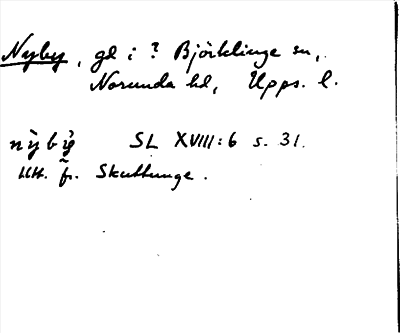 Nyby, gd i ? Björklinge sn,
Norunda hd, Upps. l.
nỳbý SL XVIII:6 s. 31.
utt. fr. Skuttunge.